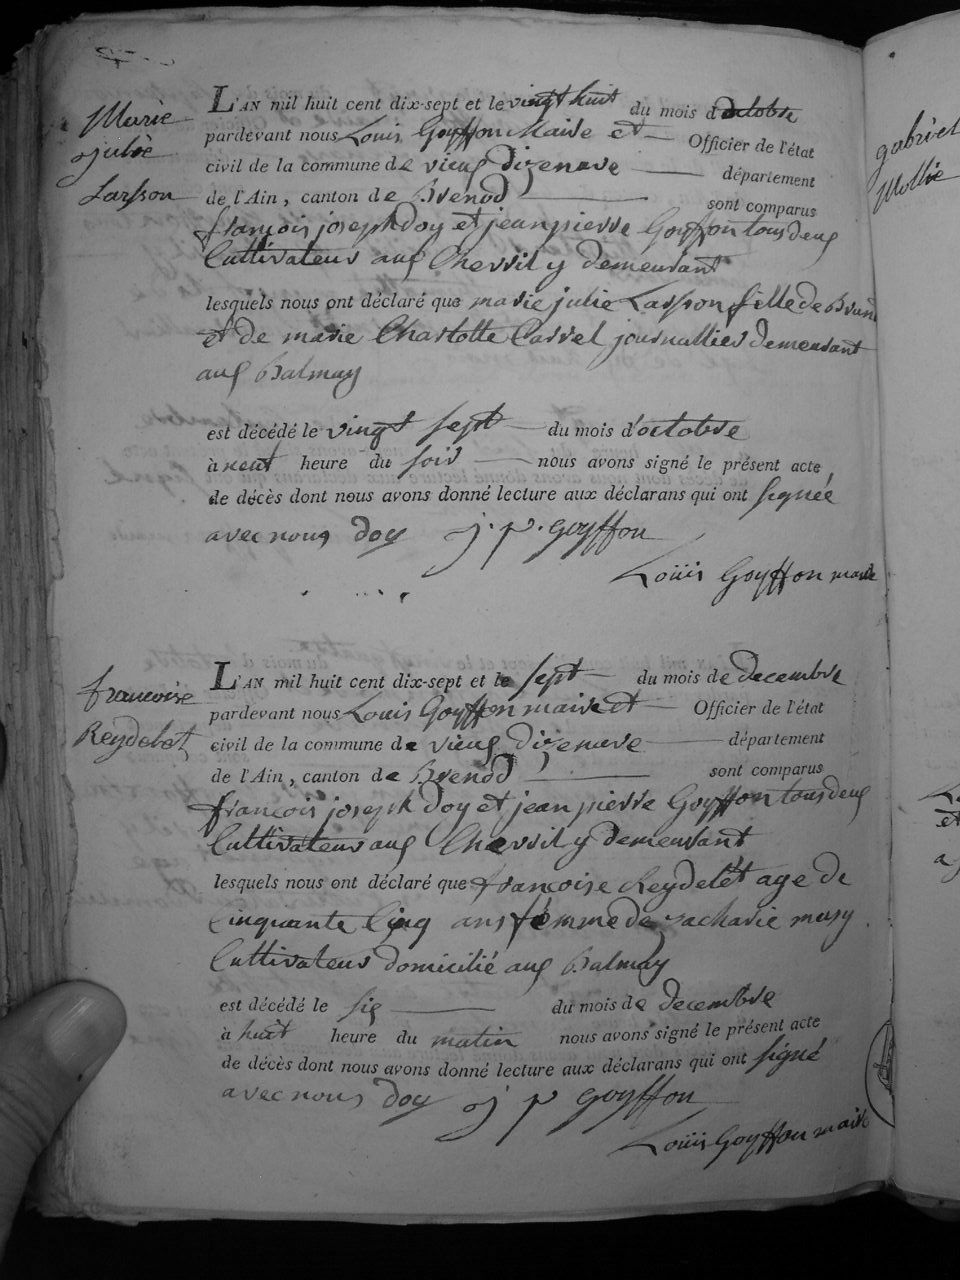 Marie
julie
Lasson
L'AN mil huit cent dix-sept et le vingt huit du mois d'octobre
pardevant nous Louis Goyffon Maire et Officier de l'état
civil de la commune de vieux dizenave département
de l'Ain, canton de Brenod sont comparus
françois joseph Doy et jean pierre Goyffon tous deux
Cultivateurs aux Chevril y demeurant
lesquels nous ont déclaré que marie julie Lasson fille de
et de marie Charlotte Carrel journallier demeurant
aux Balmay
est décédé le vingt sept du mois d'octobre
à neuf heure du soir nous avons signé le présent acte
de décès dont nous avons donné lecture aux déclarans qui ont signée
avec nous Doy j. p. goyffon
Loüis Goyffon maire
francoise
Reydelet
L'AN mil huit cent dix-sept et le sept du mois de decembre
pardevant nous Louis Goyffon maire et Officier de l'état
civil de la commune de vieux dizenave département
de l'Ain, canton de Brenod sont comparus
françois joseph Doy et jean pierre Goyffon tous deux
Cultivateurs aux Chevril y demeurant
lesquels nous ont déclaré que françoise Reydelét age de
Cinquante Cinq ans femme de zacharie musy
Cultivateur domicilié aux Balmay
est décédé le six du mois de decembre
à huit heure du matin nous avons signé le présent acte
de décès dont nous avons donné lecture aux déclarans qui ont signé
avec nous Doy j p goyffon
Loüis Goyffon maire
gabriel